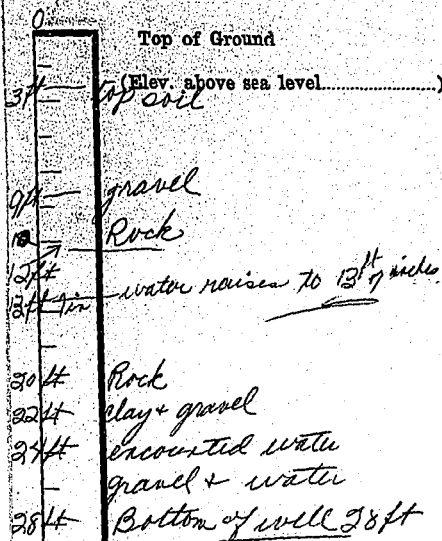 0
Top of Ground
(Elev. above sea level......................)
3ft top soil
9ft gravel
Rock
12ft
12ft 7in water raises to 12 ft 7 inches
20 ft Rock
22ft clay + gravel
24ft encounted water
gravel + water
28ft Bottom of well 28ft